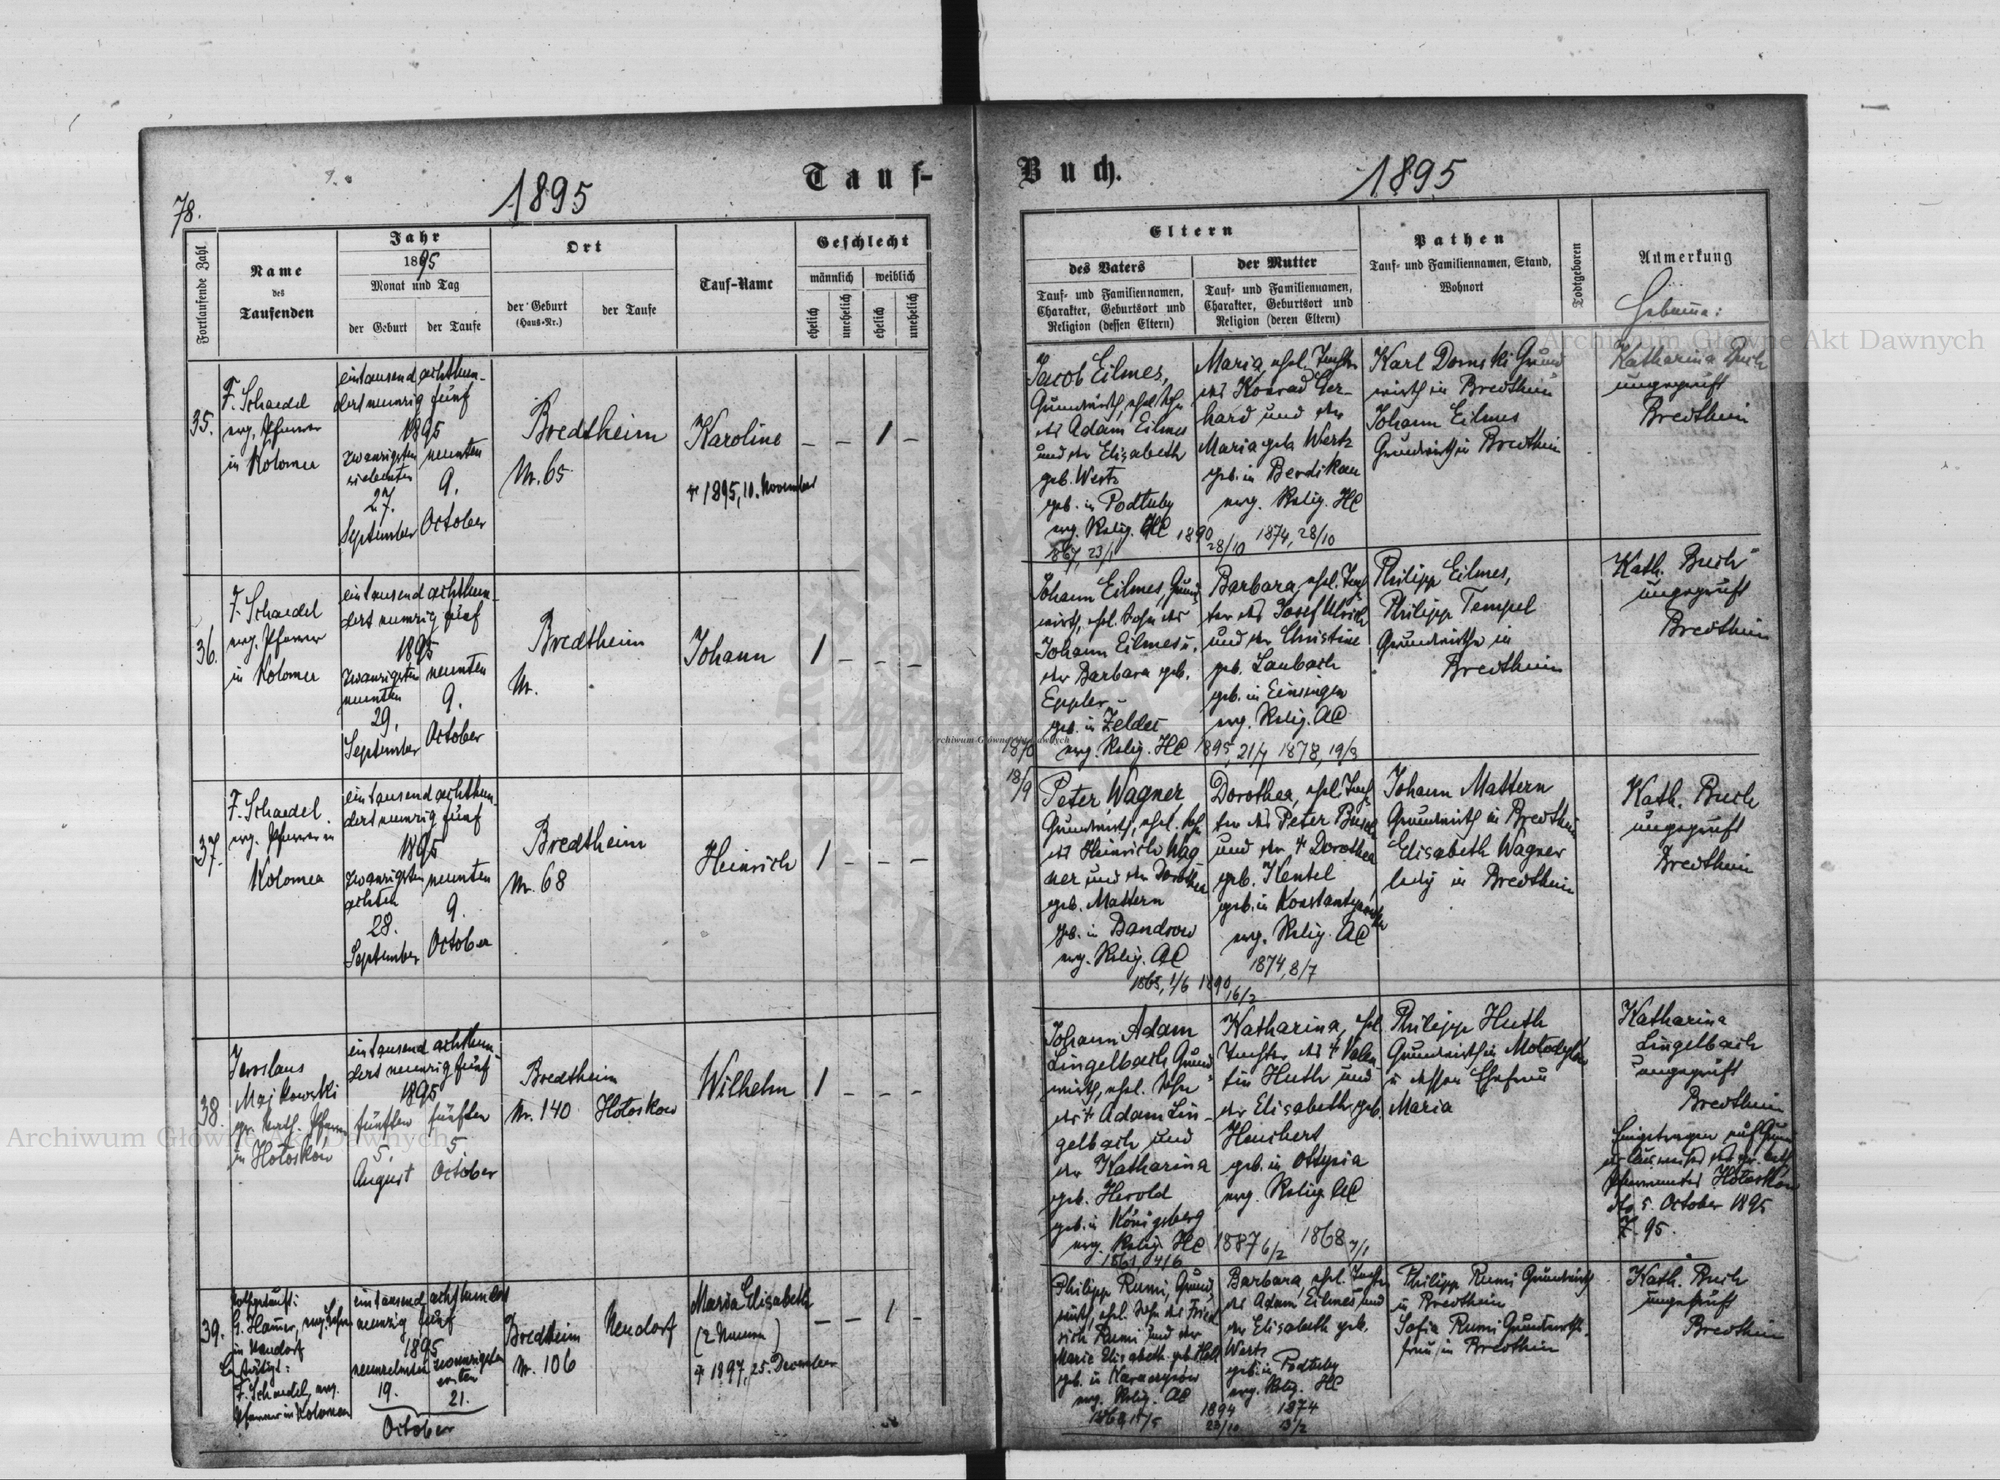 78.
1895
Tauf-
Buch.
1895
Fortlaufende Zahl
Name
des
Taufenden
Jahr
1895
Monat und Tag
der Geburt
der Taufe
Ort
der Geburt
(Haus-Nr.)
der Taufe
Tauf-Name
Geschlecht
männlich
weiblich
ehelich
unehelich
ehelich
unehelich
Eltern
des Vaters
Tauf- und Familiennamen,
Charakter, Geburtsort und
Religion (dessen Eltern)
der Mutter
Tauf- und Familiennamen,
Charakter, Geburtsort und
Religion (deren Eltern)
Pathen
Tauf- und Familiennamen, Stand,
Wohnort
Todtgeboren
Anmerkung
35.
F. Schaedel
evg. Pfarrer
in Kolomea
eintausend achthun-
dert neunzig fünf
1895
zwanzigsten neunten
siebenten
27. 9.
September October
Bredtheim
Nr. 65
Karoline
† 1895, 10. November
– – 1 –
Jacob Eilmes,
Grundwirth, ehel. Sohn
des Adam Eilmes
und der Elisabeth
geb. Wertz
geb. in Podtuby
evg. Relig. HC
1867, 23/1
1890
28/10
Maria, ehel. Tochter
des Konrad Ger-
hard und der
Maria geb. Wertz
geb. in Berdikau
evg. Relig. HC
1874, 28/10
Karl Domski Grund
wirth in Bredtheim
Johann Eilmes
Grundwirth in Bredtheim
Hebamme:
Katharina Buch
ungeprüft
Bredtheim
36.
F. Schaedel
evg. Pfarrer
in Kolomea
eintausend achthun-
dert neunzig fünf
1895
zwanzigsten neunten
neunten
29. 9.
September October
Bredtheim
Nr.
Johann
1 – – –
Johann Eilmes, Grund-
wirth, ehel. Sohn des
Johann Eilmes u.
der Barbara geb.
Eppler
geb. in Zeldez
evg. Relig. HC
1870
18/9
1895, 21/7
Barbara, ehel. Toch-
ter des Josef Ulrich
und der Christine
geb. Laubach
geb. in Einsingen
evg. Relig. AC
1878, 19/3
Philipp Eilmes,
Philipp Tempel
Grundwirthe in
Bredtheim
Kath. Buch
ungeprüft
Bredtheim
37.
F. Schaedel
evg. Pfarrer in
Kolomea
eintausend achthun-
dert neunzig fünf
1895
zwanzigsten neunten
achten
28. 9.
September October
Bredtheim
Nr. 68
Heinrich
1 – – –
Peter Wagner
Grundwirth, ehel. Sohn
des Heinrich Wag
ner und der Dorothea
geb. Mattern
geb. in Bandrow
evg. Relig. AC
1865, 1/6
1890
16/2
Dorothea, ehel. Toch-
ter des Peter Busch
und der † Dorothea
geb. Kentel
evg. Relig. AC
1874, 8/7
Johann Mattern
Grundwirth in Bredtheim
Elisabeth Wagner
ledig in Bredtheim
Kath. Buch
ungeprüft
Bredtheim
38.
Jaroslaus
Majkowski
gr. kath. Pfarrer
in Hołoskow
eintausend achthun-
dert neunzig fünf
1895
fünften fünften
5. 5.
August October
Bredtheim
Nr. 140
Hołoskow
Wilhelm
1 – – –
Johann Adam
Lingelbach Grund-
wirth, ehel. Sohn
des † Adam Lin-
gelbach und
der Katharina
geb. Herold
geb. in Königsberg
evg. Relig. HC
1861, 4/6
1887 6/2
Katharina, ehel.
Tochter des † Valen
tin Huth und
der Elisabeth geb.
Henchert
geb. in Ottynia
evg. Relig. AC
1868 7/1
Philipp Huth
Grundwirth in Mołodyłow
u dessen Ehefrau
Maria
Katharina
Lingelbach
ungeprüft
Bredtheim
Eingetragen auf Grund
des Ausweises des gr. kath.
Pfarramtes Hołoskow
dto 5. October 1895
Z. 95.
39.
Nothgetauft:
G. Hamer, evg. Lehrer
in Neudorf
Bestätigt:
F. Schaedel, evg.
Pfarrer in Kolomea
eintausend achthundert
neunzig fünf
1895
neunzehnten zwanzigsten
ersten
19. 21.
October
Bredtheim
Nr. 106
Neudorf
Maria Elisabeth
(2 Namen)
† 1897, 25. December
– – 1 –
Philipp Rumi, Grund
wirth, ehel. Sohn des Fried
rich Rumi und der
Marie Elisabeth geb.
evg. Relig. AC
1894
23/10
Barbara, ehel. Tochter
des Adam Eilmes und
der Elisabeth geb.
Wertz
geb. in Podtuby
evg. Relig. HC
1874
13/2
Philipp Rumi Grundwirth
in Bredtheim
Sofia Rumi Grundwirths-
frau in Bredtheim
Kath. Buch
ungeprüft
Bredtheim
Archiwum Główne Akt Dawnych
Archiwum Główne Akt Dawnych
Archiwum Główne Akt Dawnych